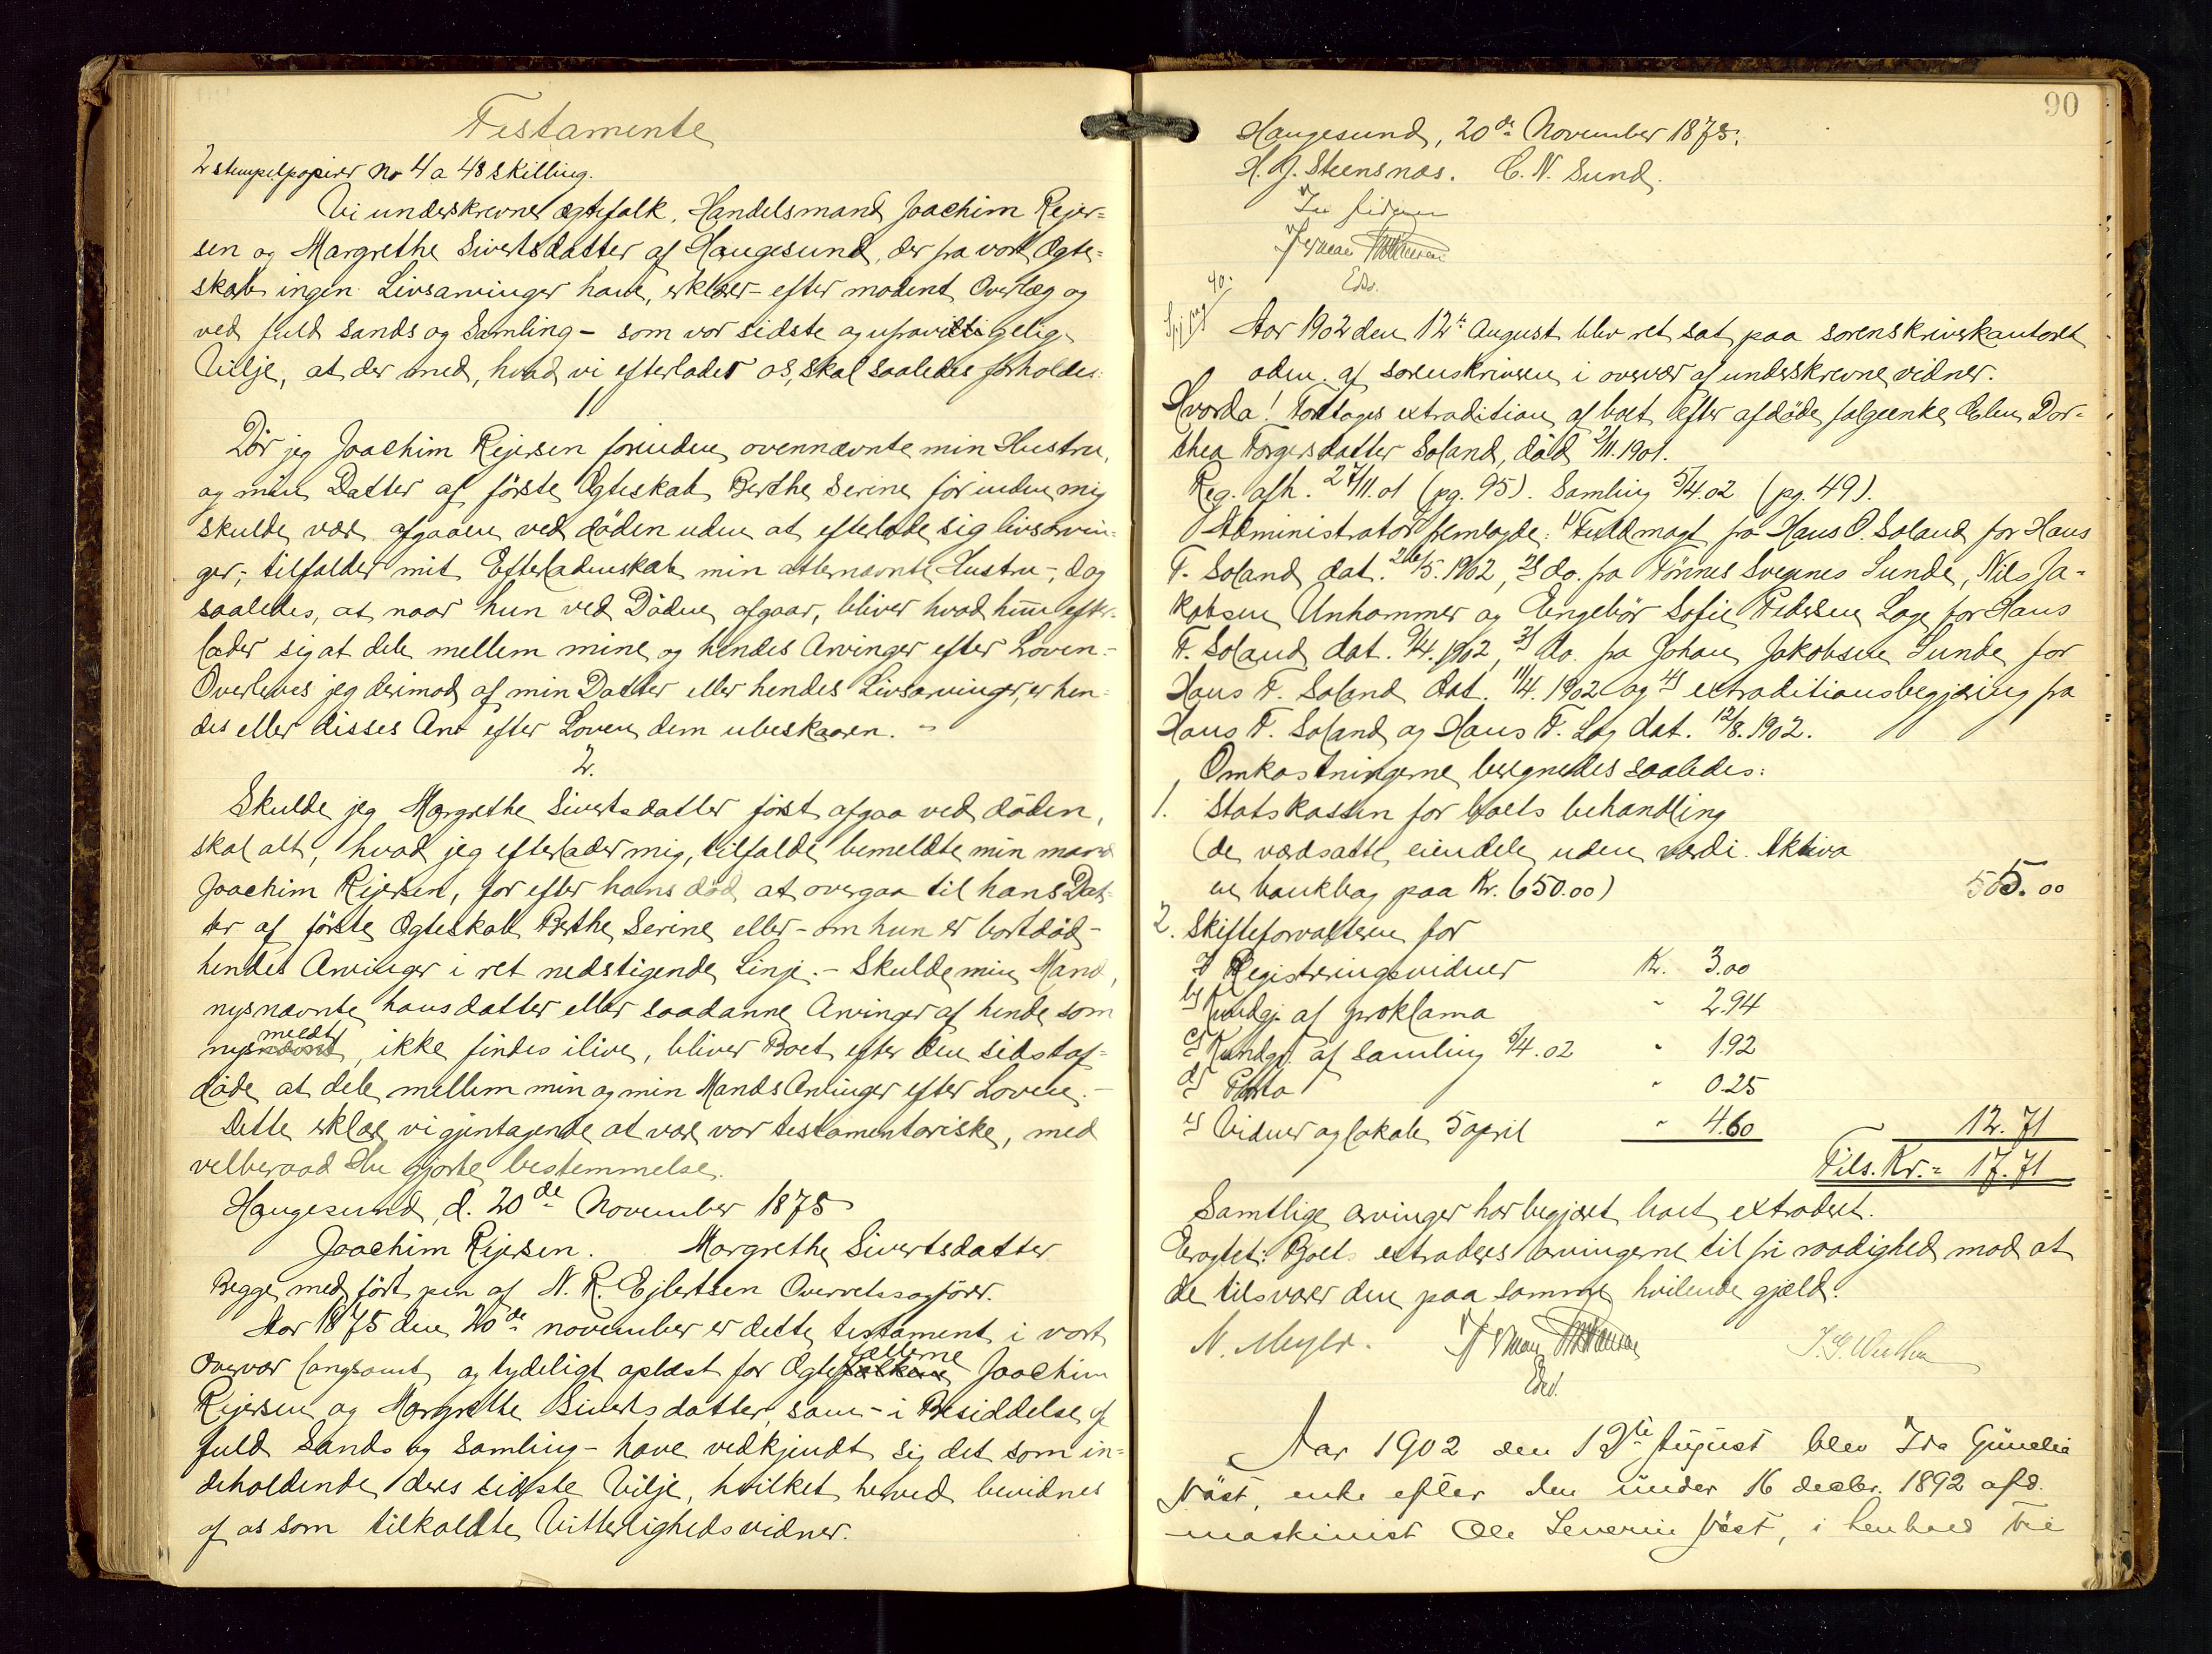 Testamente
2 stempelpapirer No 4 a 48 skilling.
Vi underskrevne ægtefolk, Handelsmand Joachim Rejer=
sen og Margrethe Sivertsdatter af Haugesund, der fra vort Ægte=
skab ingen Livsarvinger have, erklærer - efter modent Overlæg og
ved fuld Sands og Samling - som vor sidste og ufravigelige
Villje, at der med, hvad vi efterlader os, skal saaledes forholdes:
1
Dör jeg Joachim Rejersen forinden ovennævnte min Hustru,
og min Datter af förste Ægteskab Berthe Serine för inden mig
skulde være afgaaen ved döden uden at efterlade sig livsarvin=
ger, tilfalder mit Efterladenskab min atternævnte Hustru -, dog
saaledes, at naar hun ved Döden afgaar, bliver hvad hun efter-
lader sig at dele mellem mine og hendes Arvinger efter Loven.-
Overleves jeg derimod af min Datter eller hendes Livsarvinger, er hen=
des eller disses Arv efter Loven dem ubeskaaren. -
2.
Skulde jeg Margrethe Sivertsdatter först afgaa ved döden,
skal alt, hvad jeg efterlader mig, tilfalde bemeldte min mand
Joachim Rejersen, for efter hans död at overgaa til hans Dat=
ter af förste Ægteskab Berthe Serine eller - om hun er bortdöd -
hendes Arvinger i ret nedstigende Linje. - Skulde min Mand,
nysnævnte hans datter eller saadanne Arvinger af hende som
nysmeldt, ikke findes ilive, bliver Boet efter den sidstaf=
döde at dele mellem min og min Mands Arvinger efter Loven.-
Dette erklære vi gjentagende at være vor testamentariske, med
velberaad Hu gjorte bestemmelse.
Haugesund, d. 20de November 1875
Joachim Rejersen. Margrethe Sivertsdatter
Begge med fört pen af N. R. Ejlertsen Overretssagförer.
Aar 1875 den 20de november er dette testament i vort
Overvær langsomt og tydeligt oplæst for Ægtefællerne Joachim
Rejersen og Margrethe Sivertsdatter, som - i Besiddelse af
fuld Sands og Samling - have vedkjendt sig det som in=
deholdende deres sidste Vilje, hvilket herved bevidnes
af os som tilkaldte Vitterlighedsvidner.
90
Haugesund, 20de November 1875.
H. J. Steensnæs. C. N. Sund.
Edv.
40.
Aar 1902 den 12te August blev ret sat paa sorenskriverkontoret
adm. af sorenskriveren i overvær af underskrevne vidner.
Hvorda! Foretages extradition af boet efter afdöde folgeenke Elen Dor=
thea Torgersdatter Soland, död 2/11.1901.
Reg. afh. 27/11.01 (pg. 95). Samling 5/4.02 (pg. 49).
Administrator fremlagde: 1) Fuldmagt fra Hans O. Soland for Hans
T. Soland dat. 26/5.1902, 2) do. fra Tönnes Svennes Sunde, Nils Ja=
kobsen Unhammer og Engebör Sofie Pedersen Log for Hans
T. Soland dat. 9/4.1902, 3) do. fra Johan Jakobsen Sunde for
Hans T. Soland dat. 11/4.1902 og 4) extraditionsbegjæring fra
Hans T. Soland og Hans T. Log dat. 12/8.1902.
Omkostningerne beregnedes saaledes:
1. Statskassen for boets behandling
(de værdsatte eiendele uden værdi. Aktiva
en bankbog paa Kr. 650.00) 5.00
2. Skifteforvalteren for
a) Registreringsvidner Kr. 3.00
b) Kundgj. af proklama " 2.94
c) Kundgj. af samling 5/4.02 " 1.92
d) Porto " 0.25
e) Vidner og lokale 5 april " 4.60 12.71
Tils. Kr. = 17.71
Samtlige arvinger har begjæret boet extraderet.
Eragtet: Boet extraderes arvingerne til fri raadighed mod at
de tilsvarer den paa samme hvilende gjæld.
N. Meyer.
Edv.
Aar 1902 den 12te August blev Ida
Våst, enke efter den under 16 decbr. 1892 afd.
maskinist Ole Severin Våst, i henhold til